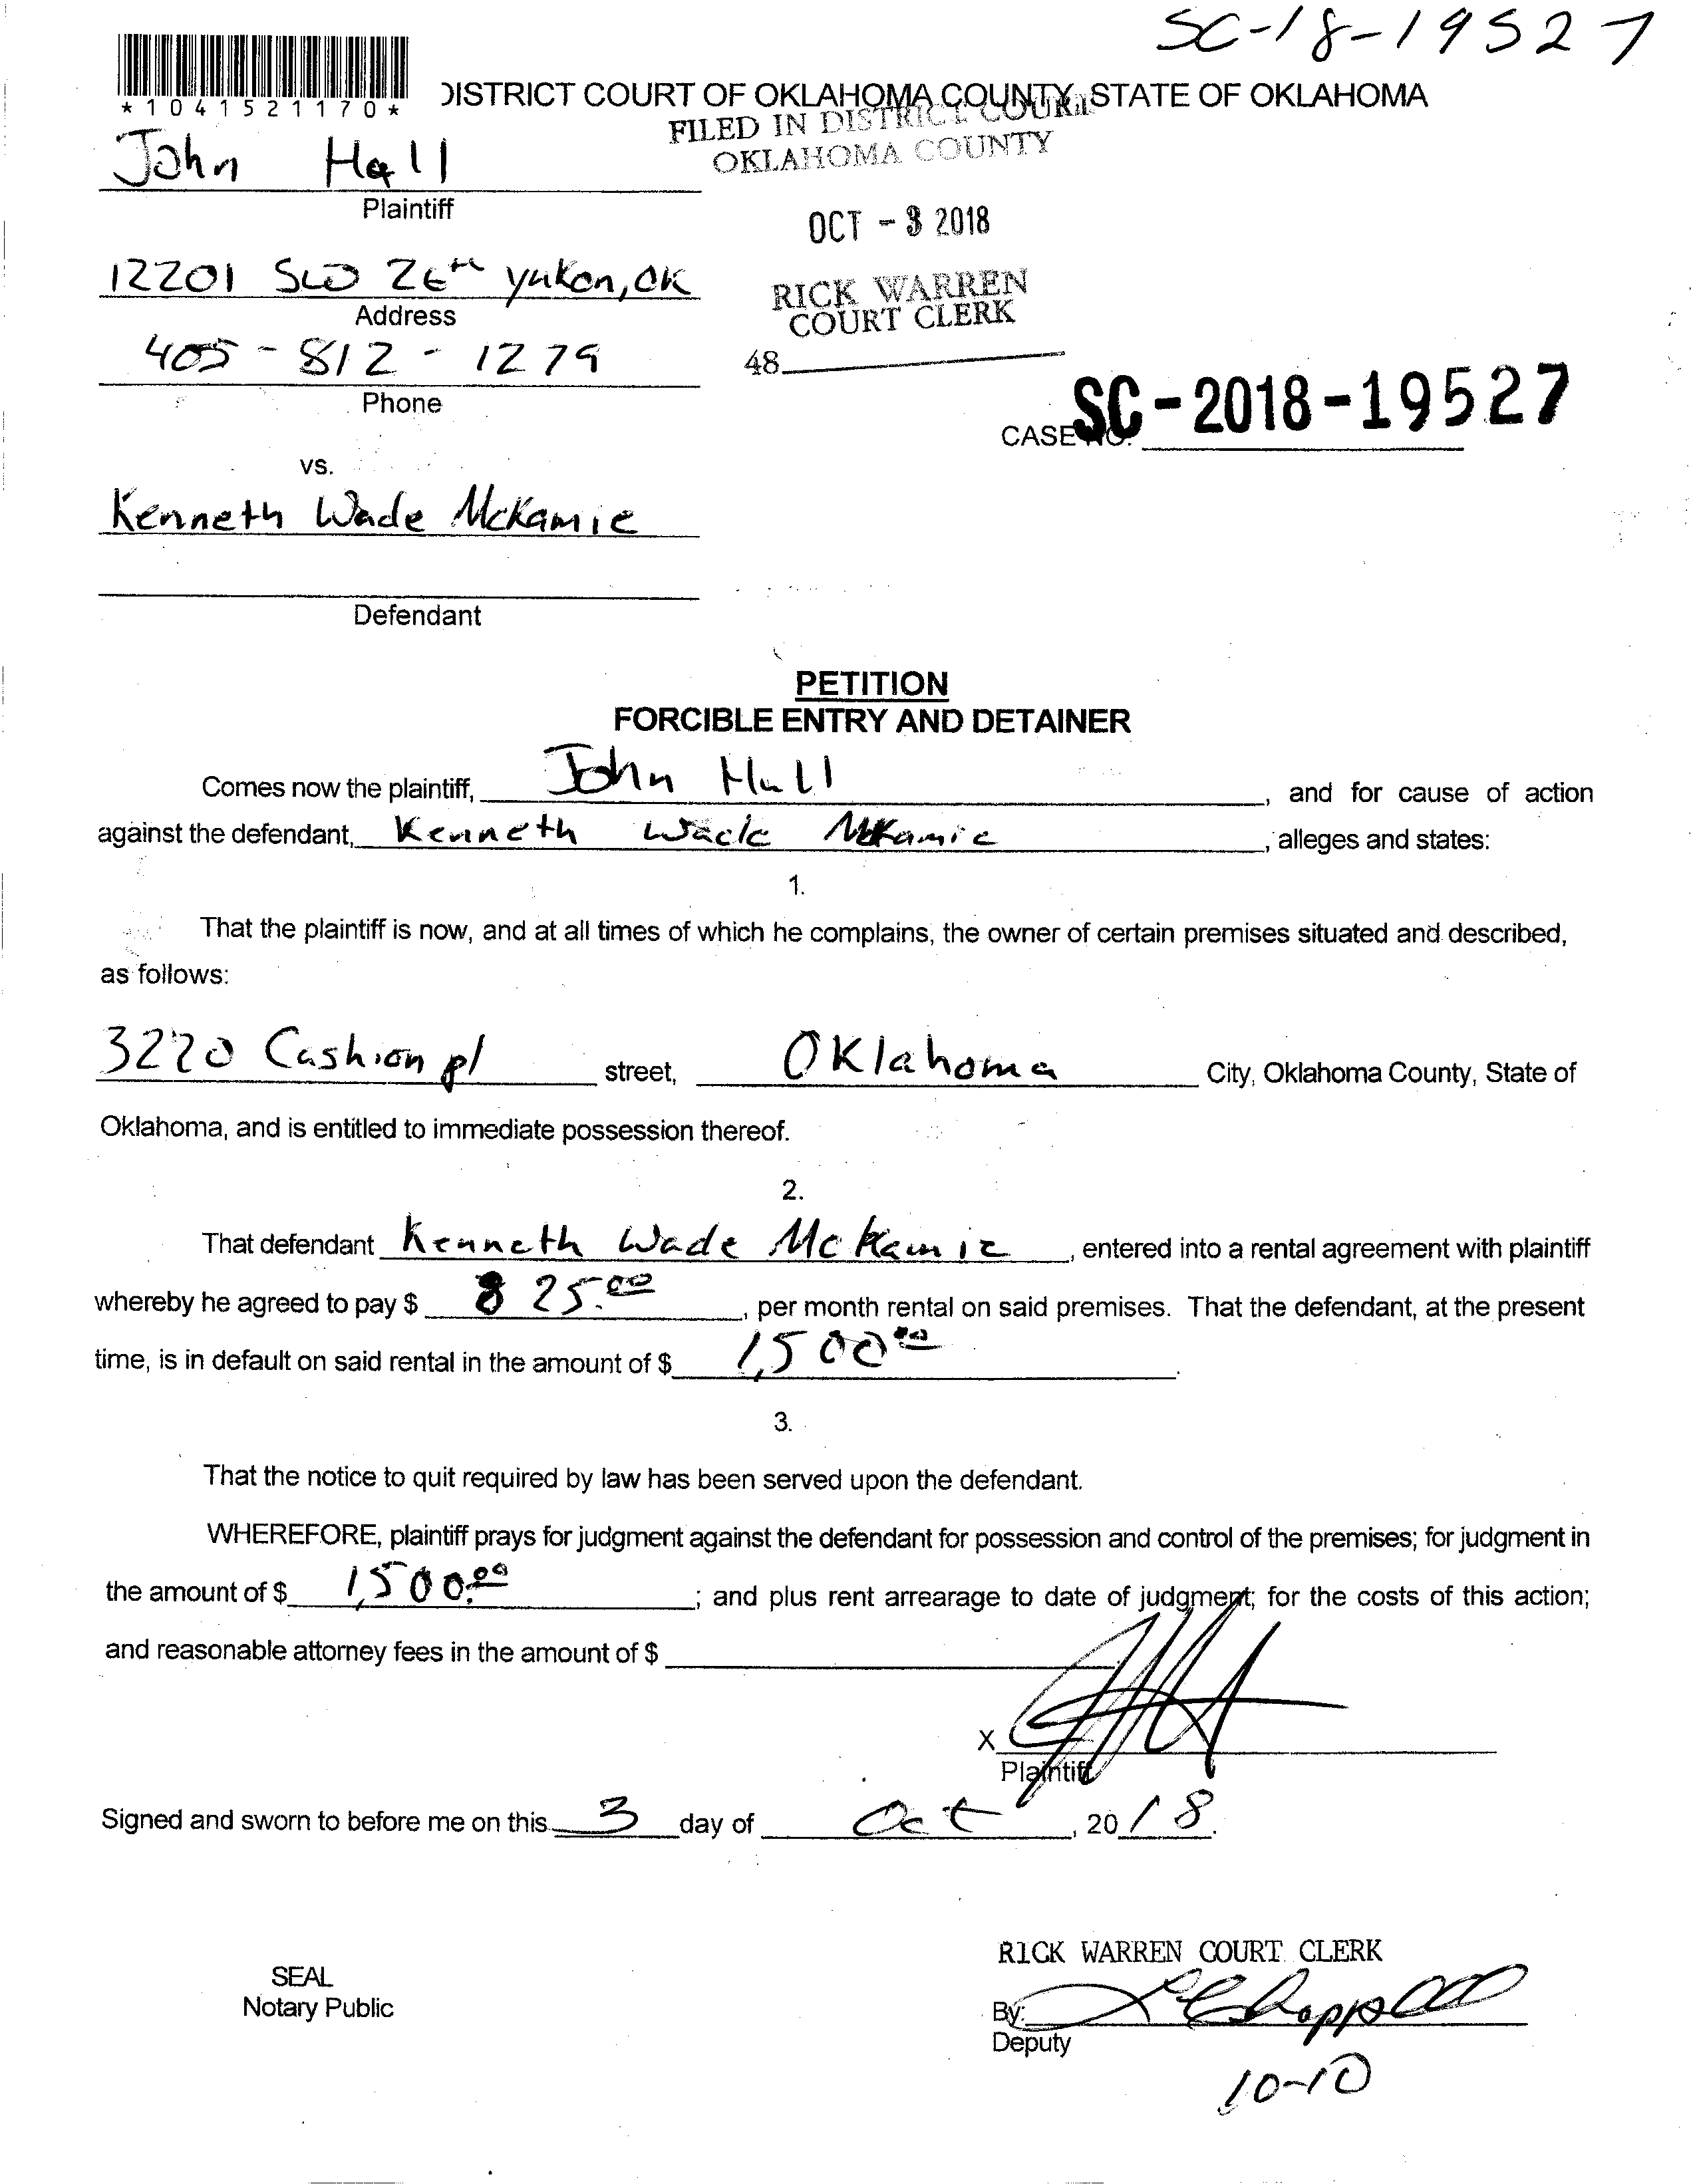 SC-18-19527
*1041521170*
DISTRICT COURT OF OKLAHOMA COUNTY, STATE OF OKLAHOMA
FILED IN DISTRICT COURT
OKLAHOMA COUNTY
John Hall
Plaintiff
OCT - 3 2018
12201 SW 26th Yukon, OK
Address
RICK WARREN
COURT CLERK
405-812-1279
Phone
48
CASE NO. SC-2018-19527
vs.
Kenneth Wade McKamie
Defendant
PETITION
FORCIBLE ENTRY AND DETAINER
Comes now the plaintiff, John Hall, and for cause of action
against the defendant, Kenneth Wade McKamie, alleges and states:
1.
That the plaintiff is now, and at all times of which he complains, the owner of certain premises situated and described,
as follows:
3220 Cashion pl street, Oklahoma City, Oklahoma County, State of
Oklahoma, and is entitled to immediate possession thereof.
2.
That defendant Kenneth Wade McKamie, entered into a rental agreement with plaintiff
whereby he agreed to pay $ 825.00, per month rental on said premises. That the defendant, at the present
time, is in default on said rental in the amount of $ 1,500.00.
3.
That the notice to quit required by law has been served upon the defendant.
WHEREFORE, plaintiff prays for judgment against the defendant for possession and control of the premises; for judgment in
the amount of $ 1,500.00; and plus rent arrearage to date of judgment; for the costs of this action;
and reasonable attorney fees in the amount of $
X
Plaintiff
Signed and sworn to before me on this 3 day of Oct, 2018.
RICK WARREN COURT CLERK
SEAL
Notary Public
By:
Deputy
10-10